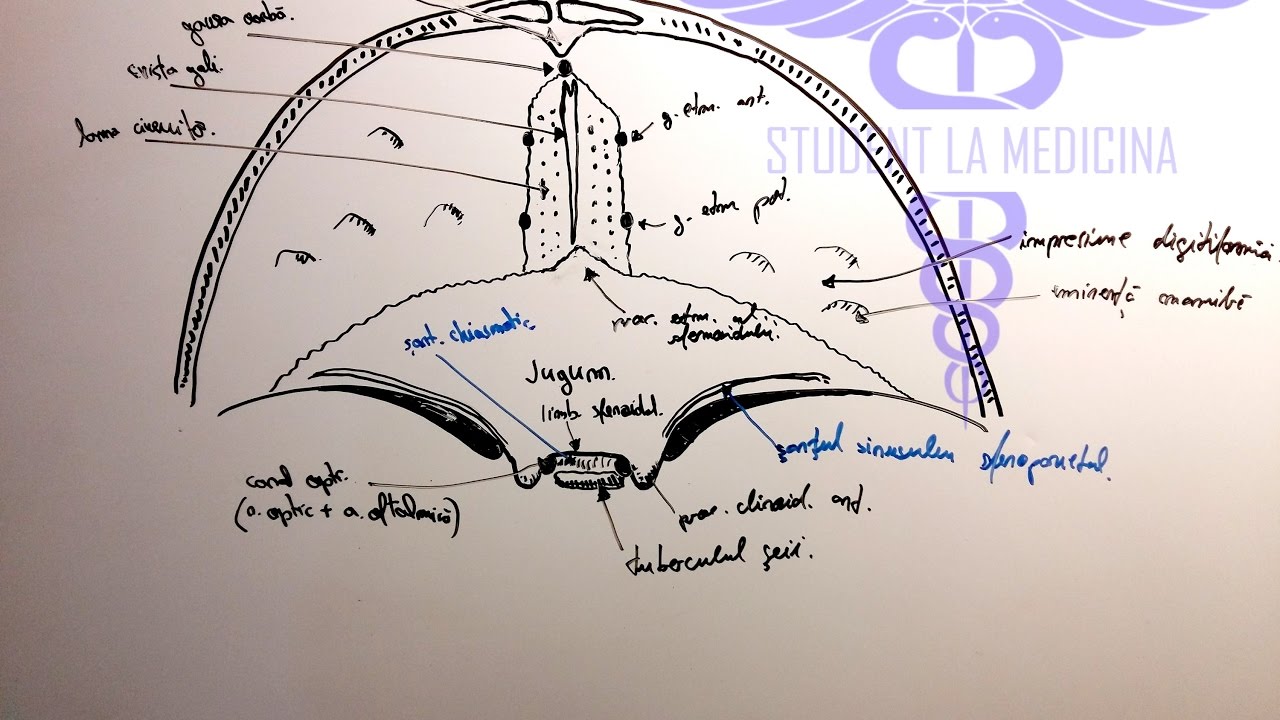 gaura oarbă.
crista gali.
lama ciuruită.
g. etm. ant.
g. etm. post.
STUDENT LA MEDICINA
impresiune digitiformă.
eminență mamilă
proc. etm. al
sfenoidului.
șanț. chiasmatic
Jugum.
limb sfenoidal.
șanțul sinusului sfenoparietal.
canal optic.
(n. optic + a. oftalmică)
proc. clinoid. ant.
tuberculul șeii.